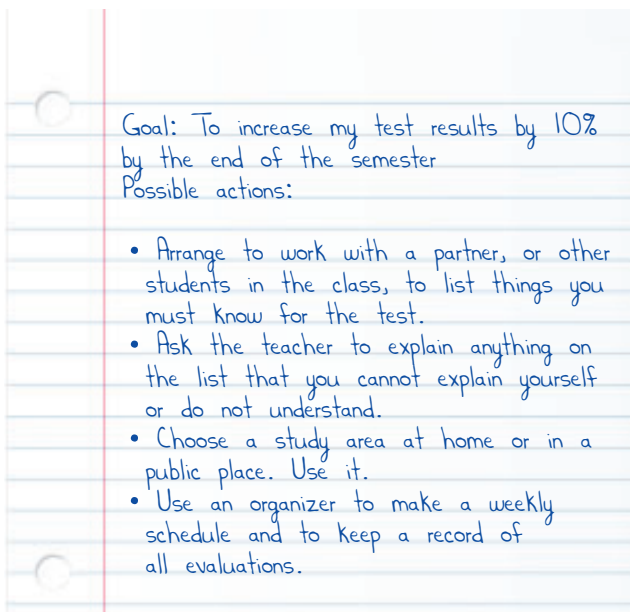 Goal: To increase my test results by 10%
by the end of the semester
Possible actions:
• Arrange to work with a partner, or other
students in the class, to list things you
must know for the test.
• Ask the teacher to explain anything on
the list that you cannot explain yourself
or do not understand.
• Choose a study area at home or in a
public place. Use it.
• Use an organizer to make a weekly
schedule and to keep a record of
all evaluations.